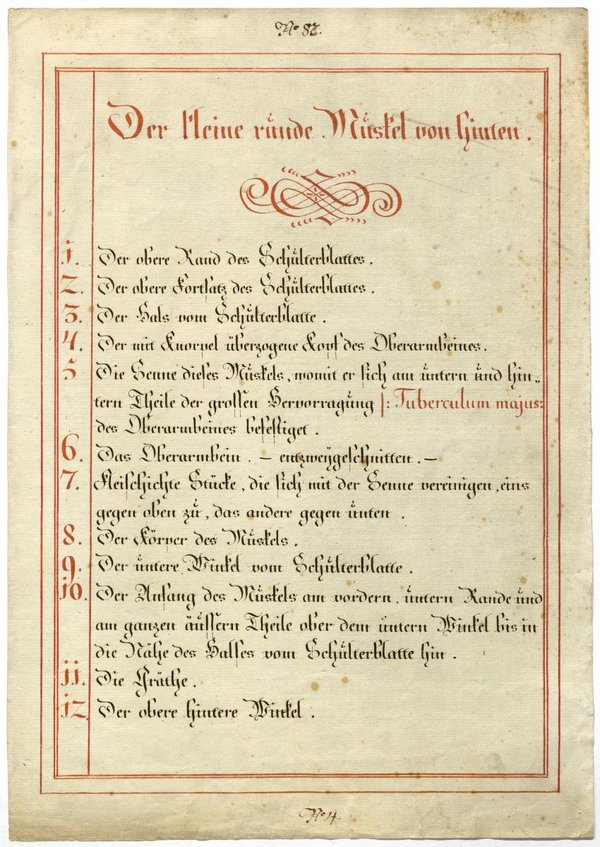 No 82.
Der kleine runde Muskel von hinten.
1. Der obere Rand des Schulterblattes.
2. Der obere Fortsatz des Schulterblattes.
3. Der Hals vom Schulterblatte.
4. Der mit Knorpel überzogene Kopf des Oberarmbeines.
5 Die Senne dieses Muskels, womit er sich am untern und hin„
tern Theile der grossen Hervorragung |: Tuberculum majus:
des Oberarmbeines befestiget.
6. Das Oberarmbein. – entzweygeschnitten. –
7. Fleischichte Stücke, die sich mit der Senne vereinigen, eins
gegen oben zu, das andere gegen unten.
8. Der Körper des Muskels.
9. Der untere Winkel vom Schulterblatte.
10. Der Anfang des Muskels am vordern, untern Rande und
am ganzen äussern Theile ober dem untern Winkel bis in
die Nähe des Halses vom Schulterblatte hin.
11. Die Gräthe.
12 Der obere hintere Winkel.
No 4.